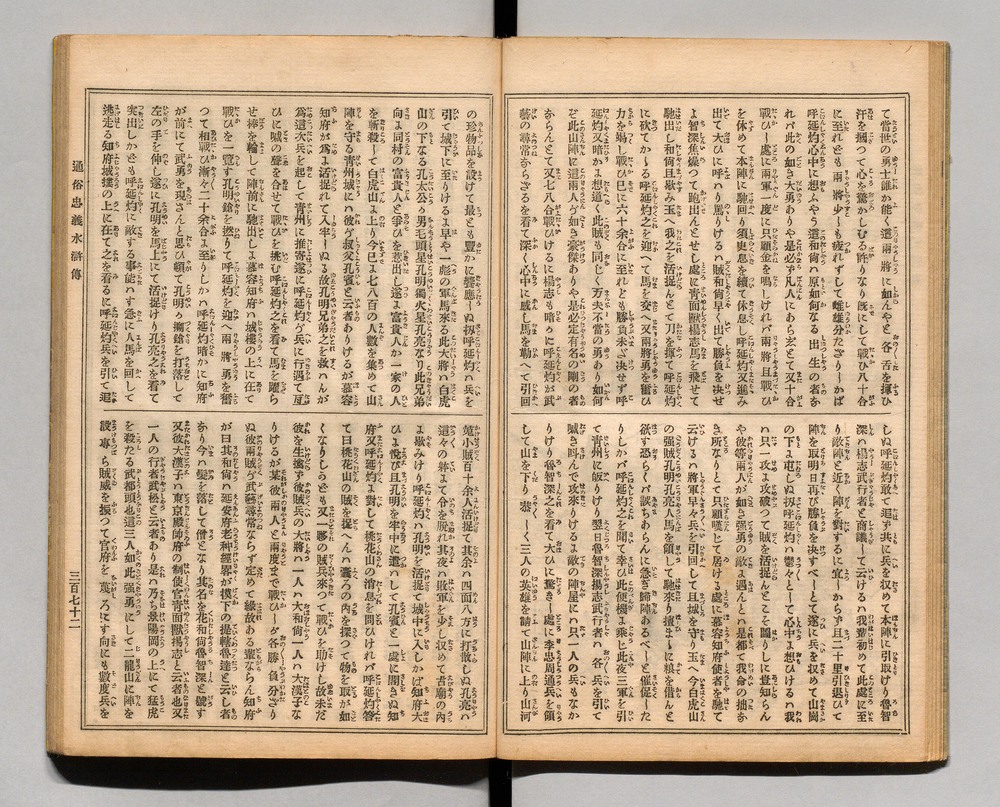 て當世の勇士誰か能く這兩將に如んやと各々舌を揮ひ
汗を握つて心を驚かしむる許りなり既にして戰ひ八十合
に至れども兩將少しも疲れずして雌雄分たざりしかば
呼延灼心中に想ふやう這和尚ハ原如何なる出ごの者ぞ
れバ此の如き大勇ありや是必ず凡人にあらじとて又十合
戰ひし處に兩軍一度に只顧金を鳴しけれバ兩將且戰ひ
をやめて本陣に馳回り須臾息を續て休息し呼延灼又進み
出て大ひに呼ハり罵りけるハ賊和尚早く出て勝負を決せ
よ智深焦燥つて跑出んとせし處に青面獸楊志馬を飛せて
馳出和尚且歇み玉へ我之を活捉んとて刀を揮て呼延灼
に砍てかゝる呼延灼之を迎へて馬を交へ又兩將勇を奮ひ
力を竭し戰ひ已に六十余合に至れとも勝負未ざ决せず呼
延灼又暗かに想道く此賊も同じく万夫不當の勇あり如何
ぞ此山陣に這兩人の如き豪傑ありや是必定有名の剛の者
ならんとて又七八合戰ひけるに楊志も暗かに呼延灼が武
藝の尋常ならざるを看て深く心中に感し馬を勒へて引回
しぬ呼延灼敢て追ず共に兵を収めて本陣に引取けり魯智
深ハ楊志武行者と商議して云けるハ我輩初めて此處に至
り敵陣と近く陣を對するに宜しからず且二十里引退ひて
陣を取明日再び勝負を決すべしとて遂に兵を収めて山崗
の下に屯しぬ扨呼延灼ハ鬱々として心中に想ひけるハ我
ハ只一攻に攻破つて賊を活捉んとこそ圖りしに豈知らん
や彼等兩人が如き强勇の敵に遇んとハ是都て我命の拙き
き所なりとて只顧嘆じて居ける處に慕容知府使者を馳て
云けるハ將軍早々兵を引回して且城を守り玉へ今白虎山
の强賊孔明孔亮人馬を領して城下に來り擅まゝに粮を借んと
欲す恐らくハ誤ちあらんに急ぎ歸陣あるべしと催促した
りしかバ呼延灼之を聞て幸ひ此便機に乘じ此夜三軍を引
て青州に皈りけり翌日魯智深揚志武行者ハ各々兵を引て
賊を叫んで攻來りけるに敵の陣屋にハ只一人の兵もなか
りけり魯智深之を看て大ひに驚きし處に李忠周通兵を領
して山を下り恭しく三人の英雄を請て山陣に上り山河
の珍物品を設けて最とも豐かに饗應しぬ扨呼延灼ハ兵を
引て城下に至りけるに早や一彪の軍馬來る此大將ハ白虎
山の下なる孔太公の男毛頭星孔明獨火星孔亮なり此兄弟
向に同村の富貴人と爭ひを惹出し遂に富貴人か一家の人
を斬殺して白虎山に上り今已に七八百の人數を集めて山
陣を守る青州城にハ彼が叔父孔賓と云者ありけるが慕容
知府が爲に活捉れて入牢しぬる故孔明兄弟之を救ハんが
爲這次兵を起して青州に推寄遂に呼延灼が兵に行遇て互
ひに喊の聲を合せて戰ひを挑む呼延灼之を看て馬を躍ら
せ捧を輪して陣前に馳出しに慕容知府ハ城樓の上に在て
戰ひを一覽す孔明鎗を撚りて呼延灼を迎へ兩將勇を奮
つて相戰ひ漸々二十余合に至りしかハ呼延灼暗かに知府
が前にて武勇を現さんと思ひ頓て孔明が搠鎗を打落して
左の手を伸し遂に孔明を馬上にて活捉けり孔亮之を看て
突出しかども呼延灼に敵する事能ハず急に人馬を回して
逃走る知府城摟の上に在て之を看るに呼延灼兵を引て追
蒐小賊百十余人を活捉て其余ハ四面八方に打散しぬ孔亮ハ
這々の躰まて命を脱れ其夜ハ敗軍を少し収めて古廟の内
に歇みけり呼延灼ハ孔明を活捉て城中に入しかば知府大
ひに悅び且孔明を牢中に遣ハして孔賓と一處に囚しめぬ知
府又呼延灼に對して桃花山の消息を問ひけれバ呼延灼答
て曰桃花山の賊を捉へんハ嚢ろの内を探つて物を取が如
くなりしかども又一夥の賊兵來つて戰ひを助けし故未だ
彼を生擒ず彼賊兵の大將ハ一人ハ大和尚一人ハ大漢子な
りけるが某彼兩人と兩度まで戰ひしが各勝負分ざり
ぬ彼兩賊が武藝尋常ならず定めて緣故ある輩ならん知府
が曰其和尚ハ延安府老种經畧が摸下の提轄魯達と云し者
なり今ハ髮を落して僧となり其名を花和尚魯智深と號す
又彼大漢子ハ東京殿帥府の制使官青面獸揚志と云者也又
一人の行者武松と云者あり是ハ乃ち景陽岡の上にて猛虎
を殺たる武都頭也這三人如此强勇にして二龍山に陣を
設專ら賊威を振つて官府を蔑ろにす向にも數度兵を
通俗忠義水滸傳
三百七十二